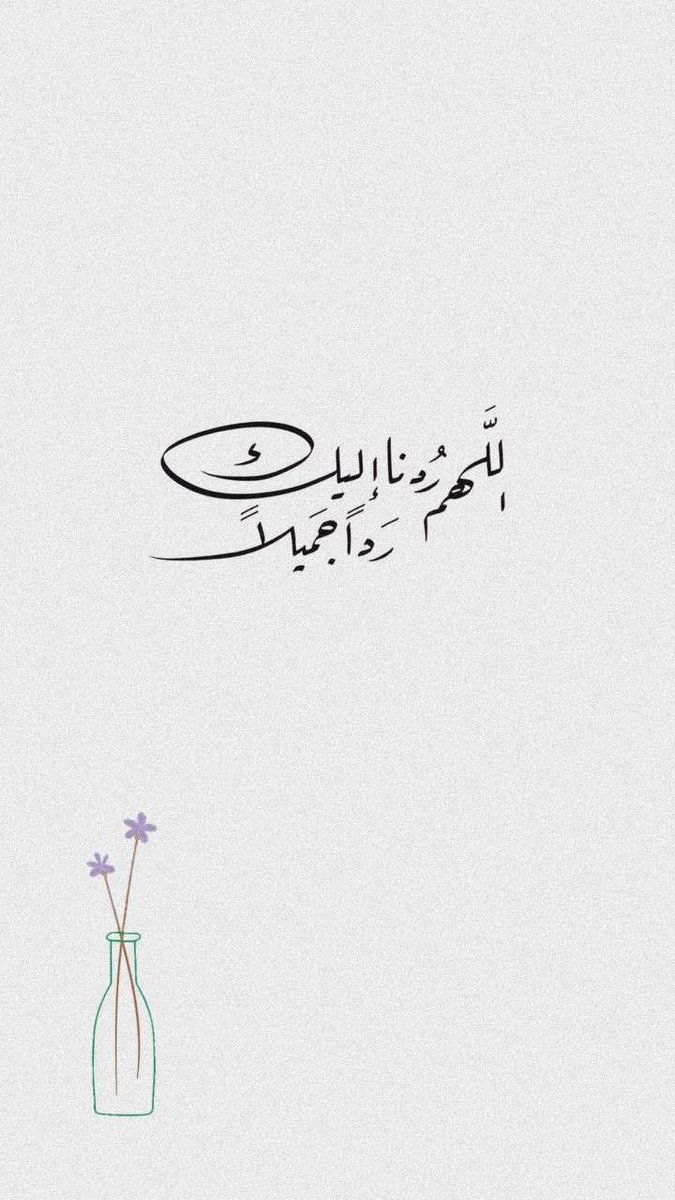 اللَّهم رُدنا إليك
رَداً جَميلاً